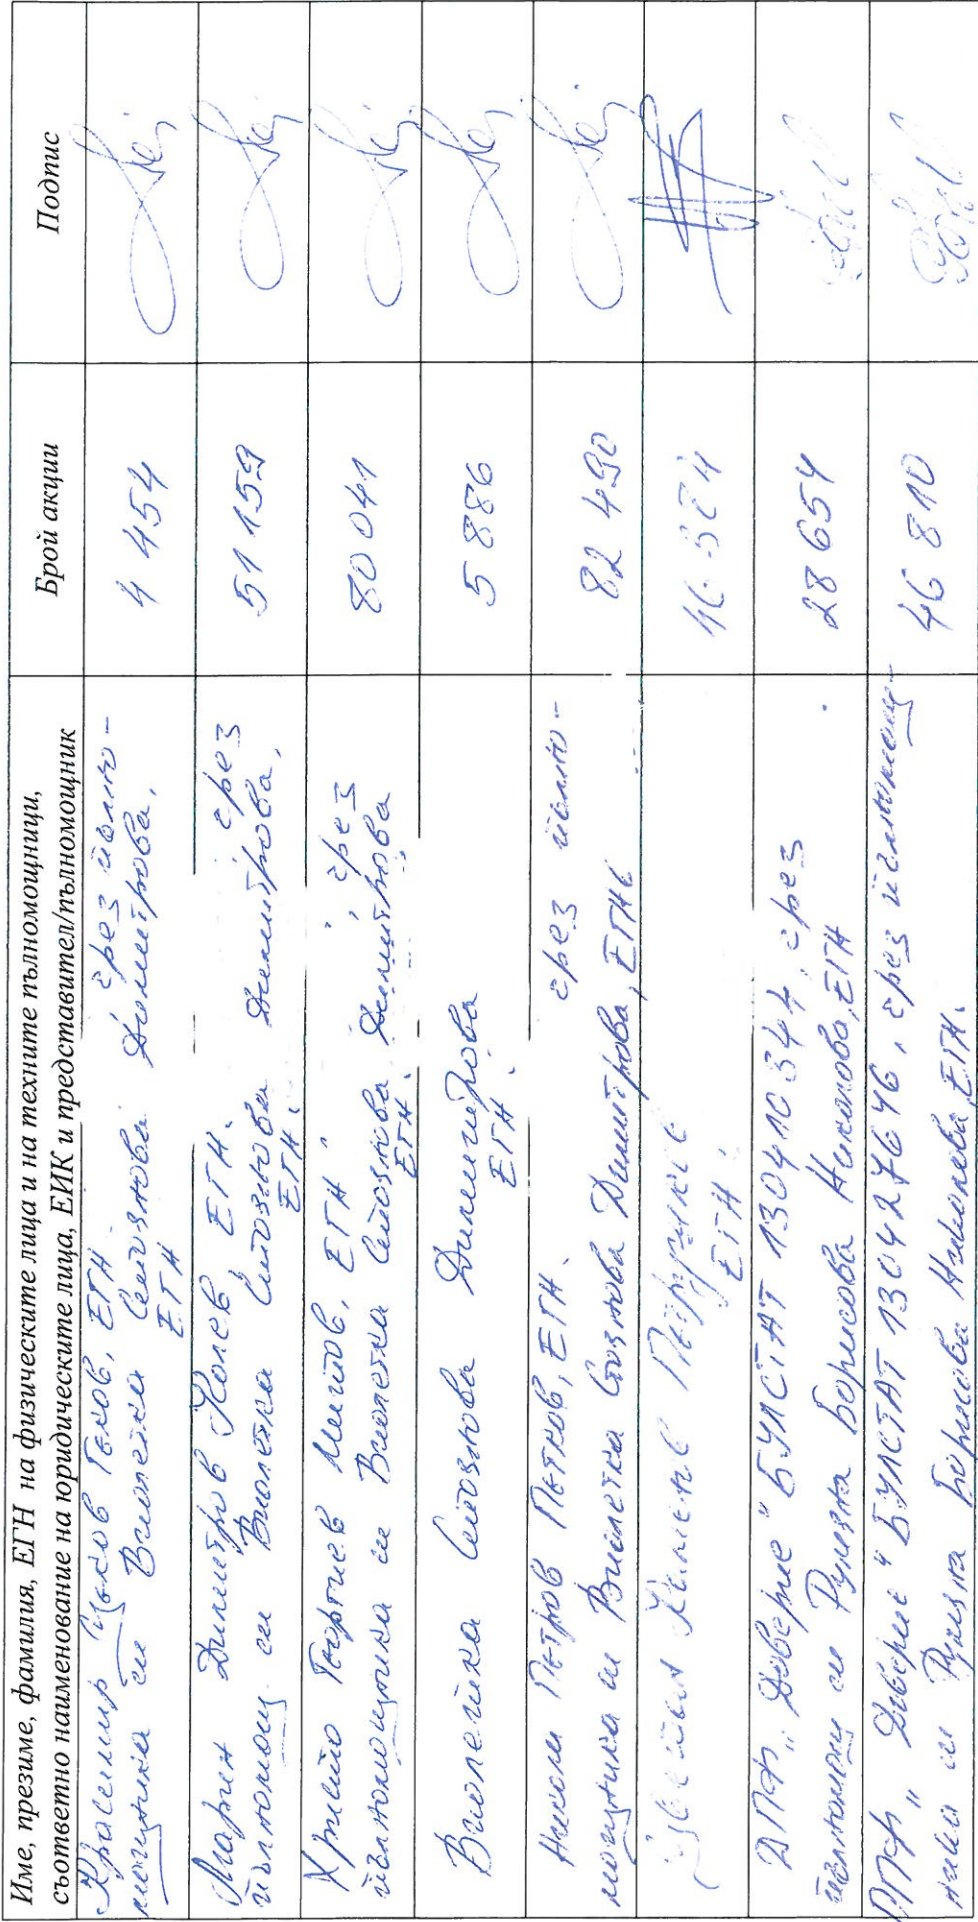 Име, презиме, фамилия, ЕГН на физическите лица и на техните пълномощници,
съответно наименование на юридическите лица, ЕИК и представител/пълномощник
Брой акции
Подпис
Красимир Цеков Геков, ЕГН чрез пълно-
мощника си Виолетка Стоянова Димитрова,
ЕГН
4 454
Марин Димитров Колев ЕГН. чрез
пълномощ. си Виолетка Стоянова Димитрова,
ЕГН.
51 159
Христо Георгиев Митов, ЕГН , чрез
пълномощника си Виолетка Стоянова Димитрова
ЕГН.
80 041
Виолетка Стоянова Димитрова
ЕГН
5 886
Никола Петров Петков, ЕГН. чрез пълно-
мощника си Виолетка Стоянова Димитрова, ЕГН
82 490
ЕГН.
ДПФ „Доверие“ БУЛСТАТ 130410344, чрез
пълномощ си Румяна Борисова Николова, ЕГН
28 654
ППФ „Доверие“ БУЛСТАТ 130427646, чрез пълномощ-
ника си Румяна Борисова Николова, ЕГН.
46 810